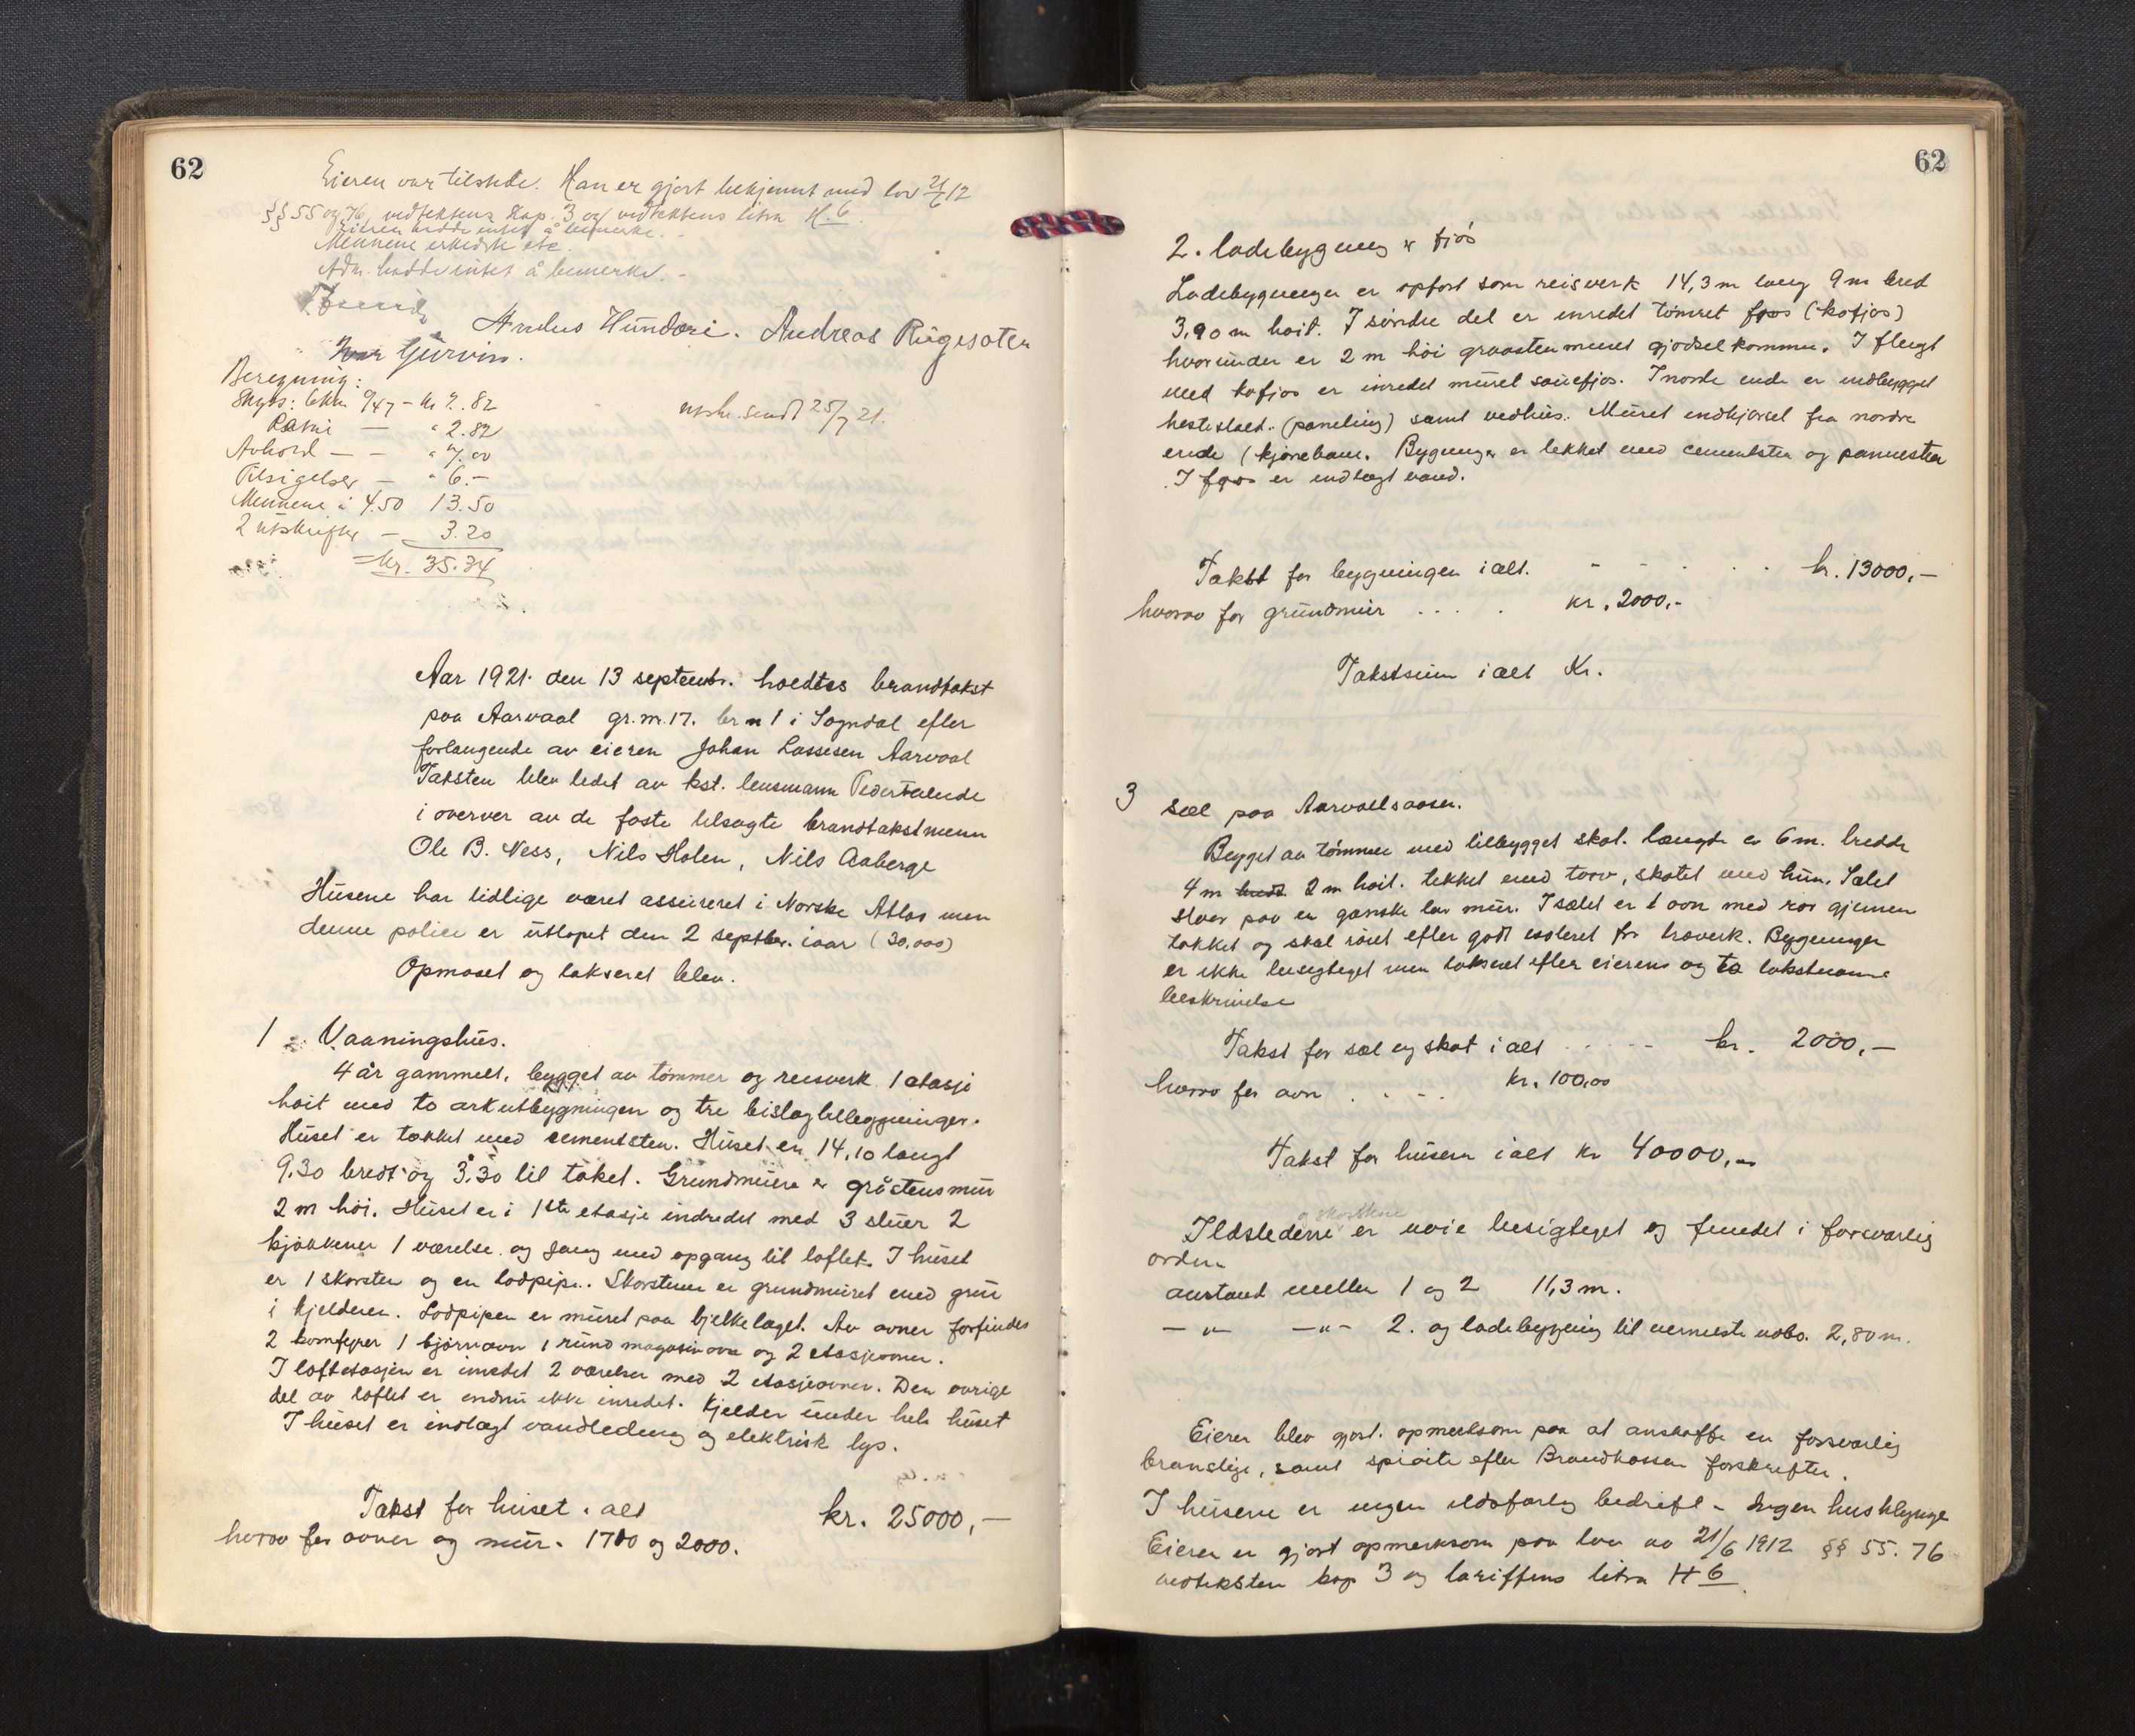 62
Eieren var tilstede. Han er gjort bekjennt med lov 21/6 12
§§ 55 og 76, vedtektens Kap. 3 og vedtektens litra H. 6
Eieren hadde intet å bemerke.
Mennene erklærte etc.
Adm. hadde intet å bemerke. -
Andreas Rügesaten
Beregning:
Skyss: - kr 2.82
- " 2.82
Avhold - - " 7.00
Tilsigelser - " 6.-
Mennene á 4.50 13.50
2 utskrifter - 3.20
Kr. 35.34
utskr. sendt 25/7 21.
Aar 1921. den 13 septembr. holdtes brandtakst
paa Aarvaal gr.nr. 17. br n 1 i Sogndal efter
forlangende av eieren Johan Lassesen Aarvaal
Taksten blev ledet av kst. lensmann
i overver av de faste tilsagte brandtakstmenn
Ole B. Ness, Nils Holen, Nils Aaberge
Husene har tidlige været assureret i Norske Atlas men
denne police er utløpet den 2 septbr. iaar (30,000)
Opmaalt og takseret blev.
1 Vaaningshus.
4 år gammelt, bygget av tømmer og reisverk 1 etasje
høit med to arkutbygningen og tre bislagtilleggninger.
Huset er tækket med cementsten. Huset er 14,10 langt
9.30 bredt og 3.30 til taket. Grundmuren er gråstensmur
2 m høi. Huset er i 1ste etasje indredet med 3 stuer 2
kjøkkener 1 værelse og gang med opgang til loftet. I huset
er 1 skorsten og en lodpipe. Skorstenen er grundmuret med grue
i kjelderen. Lodpipen er muret paa bjelkelaget. Av ovner forfindes
2 komfyrer 1 bjørnovn 1 rund magasinovn og 2 etasjeovner.
I loftetasjen er inredet 2 værelser med 2 etasjeovner. Den øvrige
del av loftet er endnu ikke inredet. Kjelder under hele huset
I huset er indlagt vandledning og elektrisk lys.
Takst for huset i alt kr. 25000,-
hvorav for ovner og mur. 1700 og 2000.
62
2. Ladebygning & fjøs
Ladebygningen er opført som reisverk 14,3 m lang 9 m bred
3,90 m høit. I søndre del er inredet tømret fjøs (kofjøs)
hvorunder er 2 m høi graastenmuret gjødselkommer. I flugt
med kofjøs er inredet muret sauefjøs. I nordre ende er indbygget
hestestald. (paneling) samt vedhus. Muret indkjørsel fra nordre
ende (kjørebane. Bygningen er tekket med cementsten og pannesten
I fjøs er indlagt vand.
Takst for bygningen ialt. - - . . . kr. 13000,-
hvorav for grundmur . . . . kr. 2000,-
Takstsum ialt Kr.
3 Sæl paa Aarvollsaasen.
Bygget av tømmer med tilbygget skot. længde er 6 m. bredde
4 m bredt 2 m høit. tekket med torv, skotet med hun. Sælet
staar paa en ganske lav mur. I sælet er 1 ovn med rør gjennem
takket og skal røret efter godt isoleret fra træverk. Bygningen
er ikke besigtiget men takseret efter eierens og to takstmænns
beskrivelse
Takst for sæl og skot i alt . . . . - - kr. 2000,-
hvorav for ovn . . - - . kr. 100,00
Takst for husene ialt kr 40000,-
og skorstene
Ildstedene er nøie besigtiget og fundet i forsvarlig
orden
avstand mellem 1 og 2 11,3 m.
- " - - " - 2. og ladebygning til nermeste nabo. 2,80 m.
Eieren blev gjort. opmerksom paa at anskaffe en forsvarlig
brandstige, samt sprøite efter Brandkassen forskrifter.
I husene er ingen ildsfarlig bedrift - Ingen husklynge
Eieren er gjort opmerksom paa lov av 21/6 1912 §§ 55. 76
vedteksten kap 3 og tariffens litra H 6